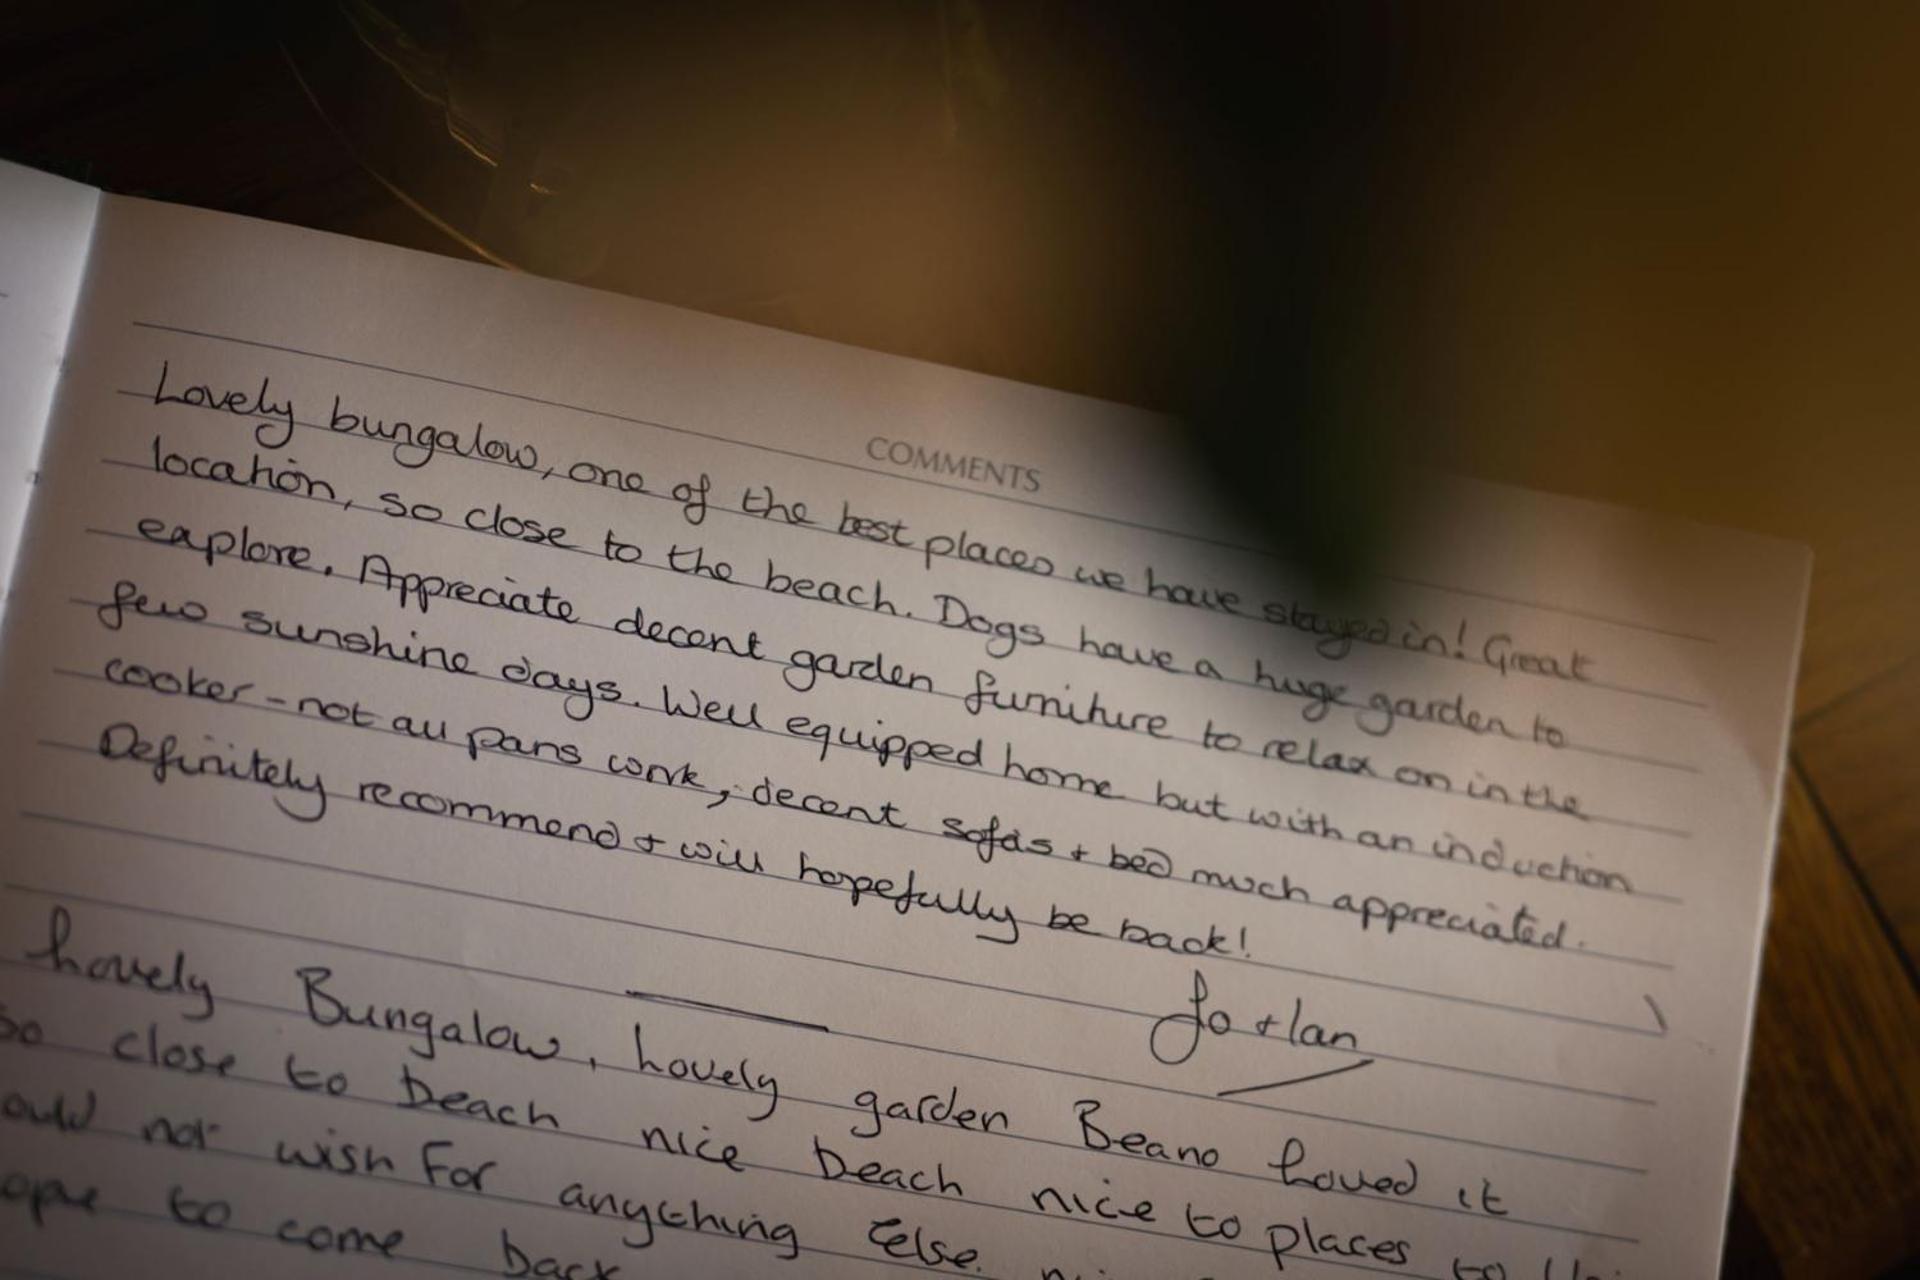 COMMENTS
Lovely bungalow, one of the best places we have stayed in! Great
location, so close to the beach. Dogs have a huge garden to
explore. Appreciate decent garden furniture to relax on in the
few sunshine days. Well equipped home but with an induction
cooker - not all pans work, decent sofas + bed much appreciated.
Definitely recommend + will hopefully be back!
Jo + Ian
Lovely Bungalow, Lovely garden Beano Loved it
so close to beach nice beach nice to places to
not wish for anything else.
to come back